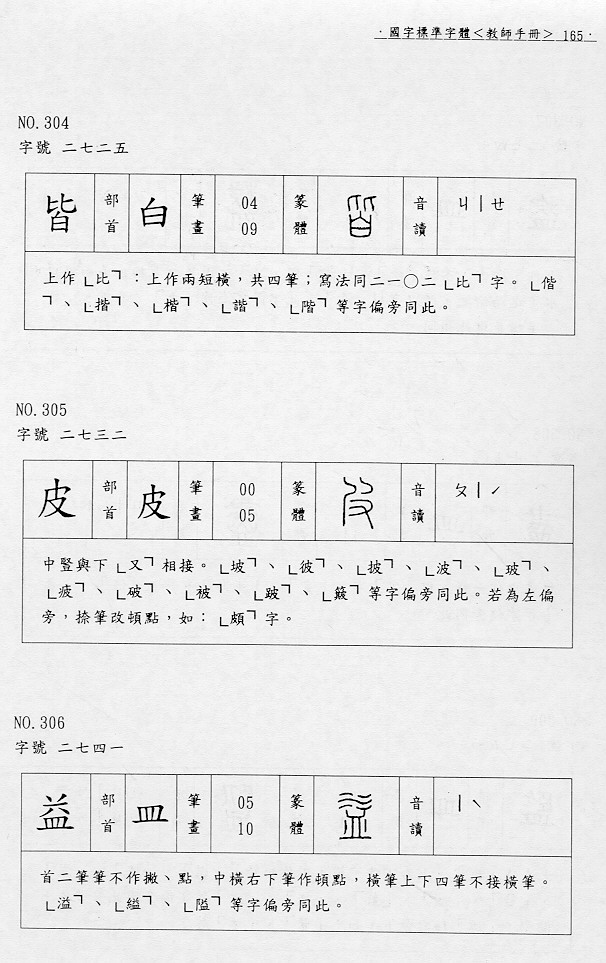 ·國字標準字體<教師手冊> 165·
NO.304
字號 二七二五
皆 部首 白 筆畫 04 09 篆體 音讀 ㄐㄧㄝ
上作「比」:上作兩短橫,共四筆;寫法同二一○二「比」字。「偕
」、「揩」、「楷」、「諧」、「階」等字偏旁同此。
NO.305
字號 二七三二
皮 部首 皮 筆畫 00 05 篆體 音讀 ㄆㄧˊ
中豎與下「又」相接。「坡」、「彼」、「披」、「波」、「玻」、
「疲」、「破」、「被」、「跛」、「簸」等字偏旁同此。若為左偏
旁,捺筆改頓點,如:「頗」字。
NO.306
字號 二七四一
益 部首 皿 筆畫 05 10 篆體 音讀 ㄧˋ
首二筆筆不作撇、點,中橫右下筆作頓點,橫筆上下四筆不接橫筆。
「溢」、「縊」、「隘」等字偏旁同此。